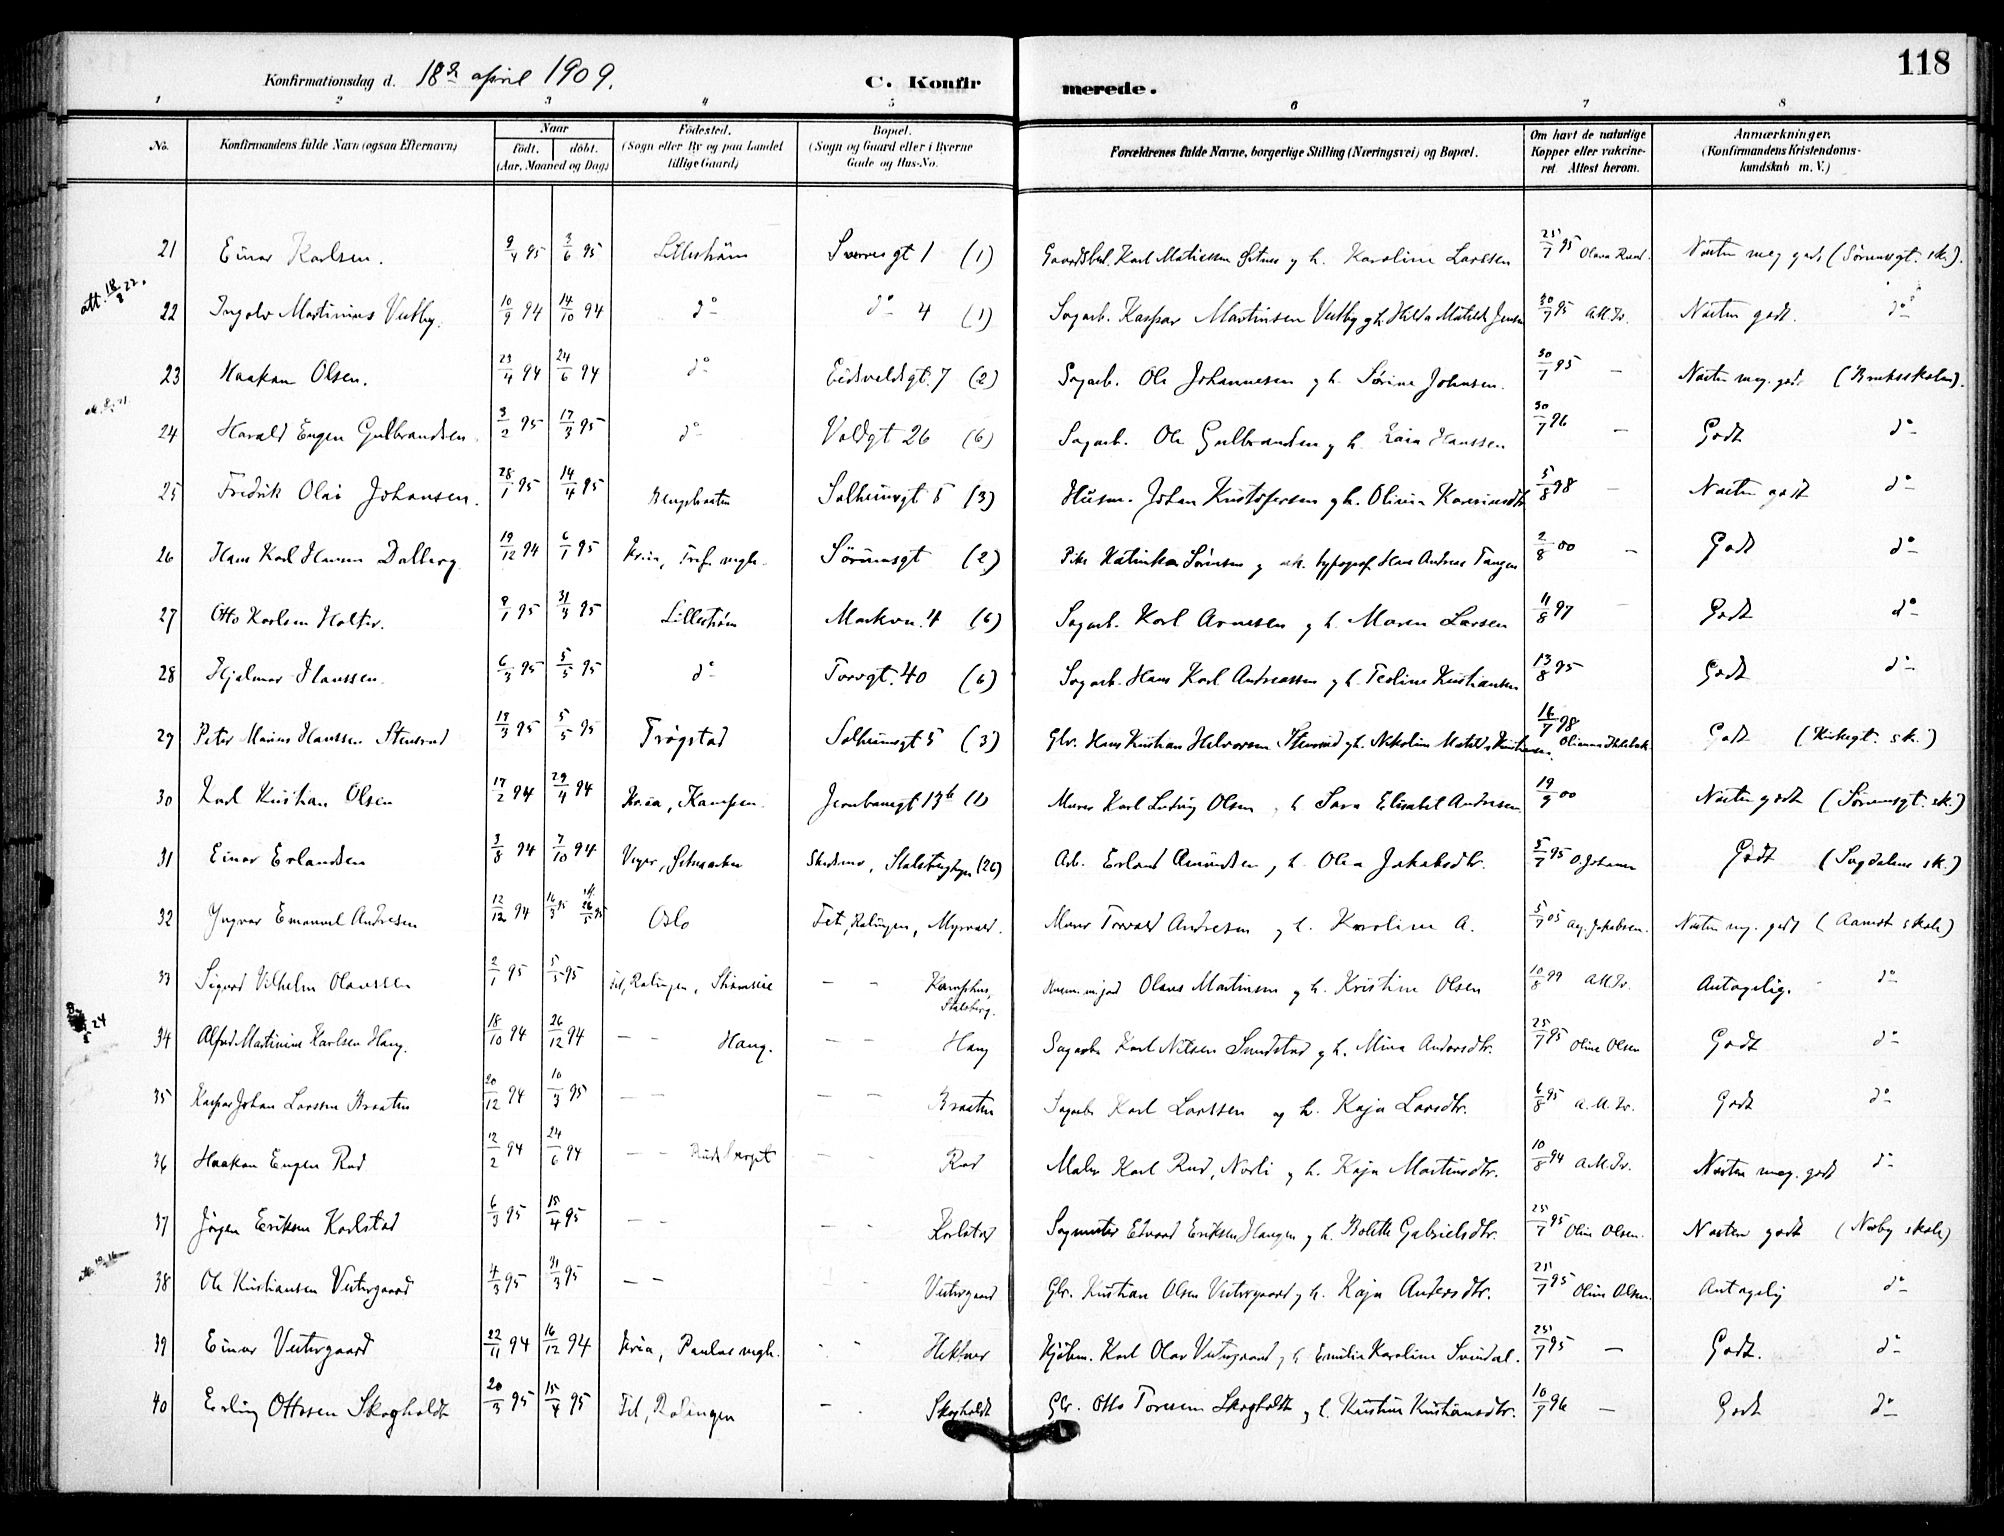 118
Konfirmationsdag d. 18de april 1909. C. Konfirmerede.
1 2 3 4 5 6 7 8
No. Konfirmandens fulde Navn (ogsaa Efternavn) Naar født. døbt. (Aar, Maaned og Dag) Fødested. (Sogn eller By og paa Landet tillige Gaard) Bopæl. (Sogn og Gaard eller i Byerne Gade og Hus-No. Forældrenes fulde Navne, borgerlige Stilling (Næringsvei) og Bopæl. Om havt de naturlige Kopper eller vakcineret Attest herom. Anmærkninger. (Konfirmandens Kristendomskundskab m. V.)
21 Einar Karlsen. 9/4 95 3/6 95 Lillestrøm Sverresgt 1 (1) Karl Matiesen g h. Karoline Larssen 25/7 95 Olava Næsten meg godt (Sørumsgt. sk.).
att. 18/8 22.
22 Ingolv Martinius Vestby. 10/9 94 14/10 94 do do 4 (1) Sagarb. Kaspar Martinsen Vestby g h. Hilda Matilde Jensen 30/7 95 A.M.Tr. Næsten godt. do
23 Haakon Olsen. 23/4 94 24/6 94 do Eidsvoldsgt. 7 (2) Sagarb. Ole Johannesen g h. Sørine Johnsen. 30/7 95 — Næsten meg. godt (Bruksskolen).
24 Harald Eugen Gulbrandsen. 3/2 95 17/3 95 do Voldgt 26 (6) Sagarb. Ole Gulbrandsen g h. Hanssen 30/7 96 — Godt do
25 Fredrik Olai Johansen. 28/1 95 14/4 95 Solheimsgt 5 (3) Husm. Johan Kristofersen g h. Olivia 5/8 98 — Næsten godt do
26 Hans Karl Hansen Dalberg 19/12 94 6/1 95 Kria, Tref. mgh. Sørumsgt (2) Pike Katinka Sørensen g typograf Hans Andreas Tangen 2/8 00 — Godt do
27 Otto Karlsen Holter. 9/1 95 31/3 95 Lillestrøm Markvn. 4 (6) Sagarb. Karl Arnesen g h. Maren Larsen 11/8 97 Godt do
28 Hjalmar Hanssen. 6/3 95 5/5 95 do Torvgt. 40 (6) Sagarb. Hans Karl Andreassen g h. Teoline Kristiansen 13/8 95 Godt do
29 Peter Marius Hanssen Stensrud 19/3 95 5/5 95 Trøgstad Solheimsgt 5 (3) Gbr. Hans Kristian Helvorsen Stensrud g h. Nikoline Matilde Kristiansen. 16/7 98 Godt (Kirkegt. sk.)
30 Karl Kristian Olsen 17/2 94 29/4 94 Kria, Kampen. Jernbanegt 13b (1) Murer Karl Ludvig Olsen g h Sara Elisabet Andresen 19/9 00 Næsten godt (Sørumsgt. sk.)
31 Einar Erlandsen 3/8 94 7/10 94 Skedsmo, (26) Arb. Erland Amundsen g h. Olea Jakobsdtr. 5/7 95 O. Johansen Godt (Sagdalens sk.)
32 Yngvar Emanuel Andresen 12/12 94 16/3 95 Oslo Fet, Rælingen, Myrvold. Murer Torvald Andresen g h. Karoline A. 5/7 05 Aug. Jakobsen. Næsten mg. godt (Aamot skole)
33 Sigurd Vilhelm Olaussen 2/1 95 5/5 95 Fet, Rælingen, — — Kamphus, Stalsberg. Olaus Martinsen g h. Kristine Olsen 10/8 99 A.M.Tr. Antagelig. do
5 24
34 Alfred Martinius Karlsen Haug. 18/10 94 26/12 94 — — Haug. — — Haug Sagarbr Karl Nilsen Sundstad g h. Mina Andersdtr. 25/7 95 Oline Olsen Godt do
35 Kaspar Johan Larssen Braaten 20/12 94 10/3 95 — — — — Braaten Sagarbr Karl Larssen og h. Kaja Larsdtr. 6/8 95 A.M.Tr. Godt do
36 Haakon Eugen Rud 12/2 94 24/6 94 — — — — Rud Maler Karl Rud, Norli g h. Kaja Martinsdtr. 10/8 94 A.M.Tr. Næsten meg. godt do
37 Jørgen Eriksen Karlstad 6/3 95 15/4 95 — — — — Karlstad Sagmester Edvard Eriksen Haugen g h. Bolette Gabrielsdtr. 25/7 95 Oline Olsen. Næsten godt (Norby skole)
38 Ole Kristiansen Vestergaard 4/3 95 31/3 95 — — — — Vestergaard Gbr. Kristian Olsen Vestergaard g h. Kaja Andersdtr. 25/7 95 Oline Olsen. Antagelig do
39 Einar Vestergaard 22/11 94 16/12 94 Kria, Paulus mgh. — — Hektner Kjøbm. Karl Olav Vestergaard g h Emilie Karoline Svindal. 25/7 95 — Godt. do
40 Erling Ottosen Skogholdt 20/3 95 15/4 95 Fet, Rælingen — — Skogholdt Gbr. Otto Toresen Skogholdt g h. Kristine Kristiansdtr. 10/7 96 — Godt do